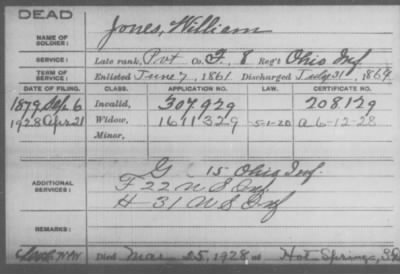 DEAD
NAME OF SOLDIER: Jones, William
SERVICE: Late rank, Pvt Co. F, 8 Reg't Ohio Inf
TERM OF SERVICE: Enlisted June 7, 1861. Discharged July 31, 1869
DATE OF FILING. CLASS. APPLICATION NO. LAW. CERTIFICATE NO.
1879 Sep 6 Invalid, 307929 208129
1928 Apr 21 Widow, 1611329 5-1-20 A 6-12-28
Minor,
ADDITIONAL SERVICES: G 15 Ohio Inf.
F 22 U S Inf
H 31 U S Inf
REMARKS:
Died Mar 25, 1928 at Hot Springs, S.D.